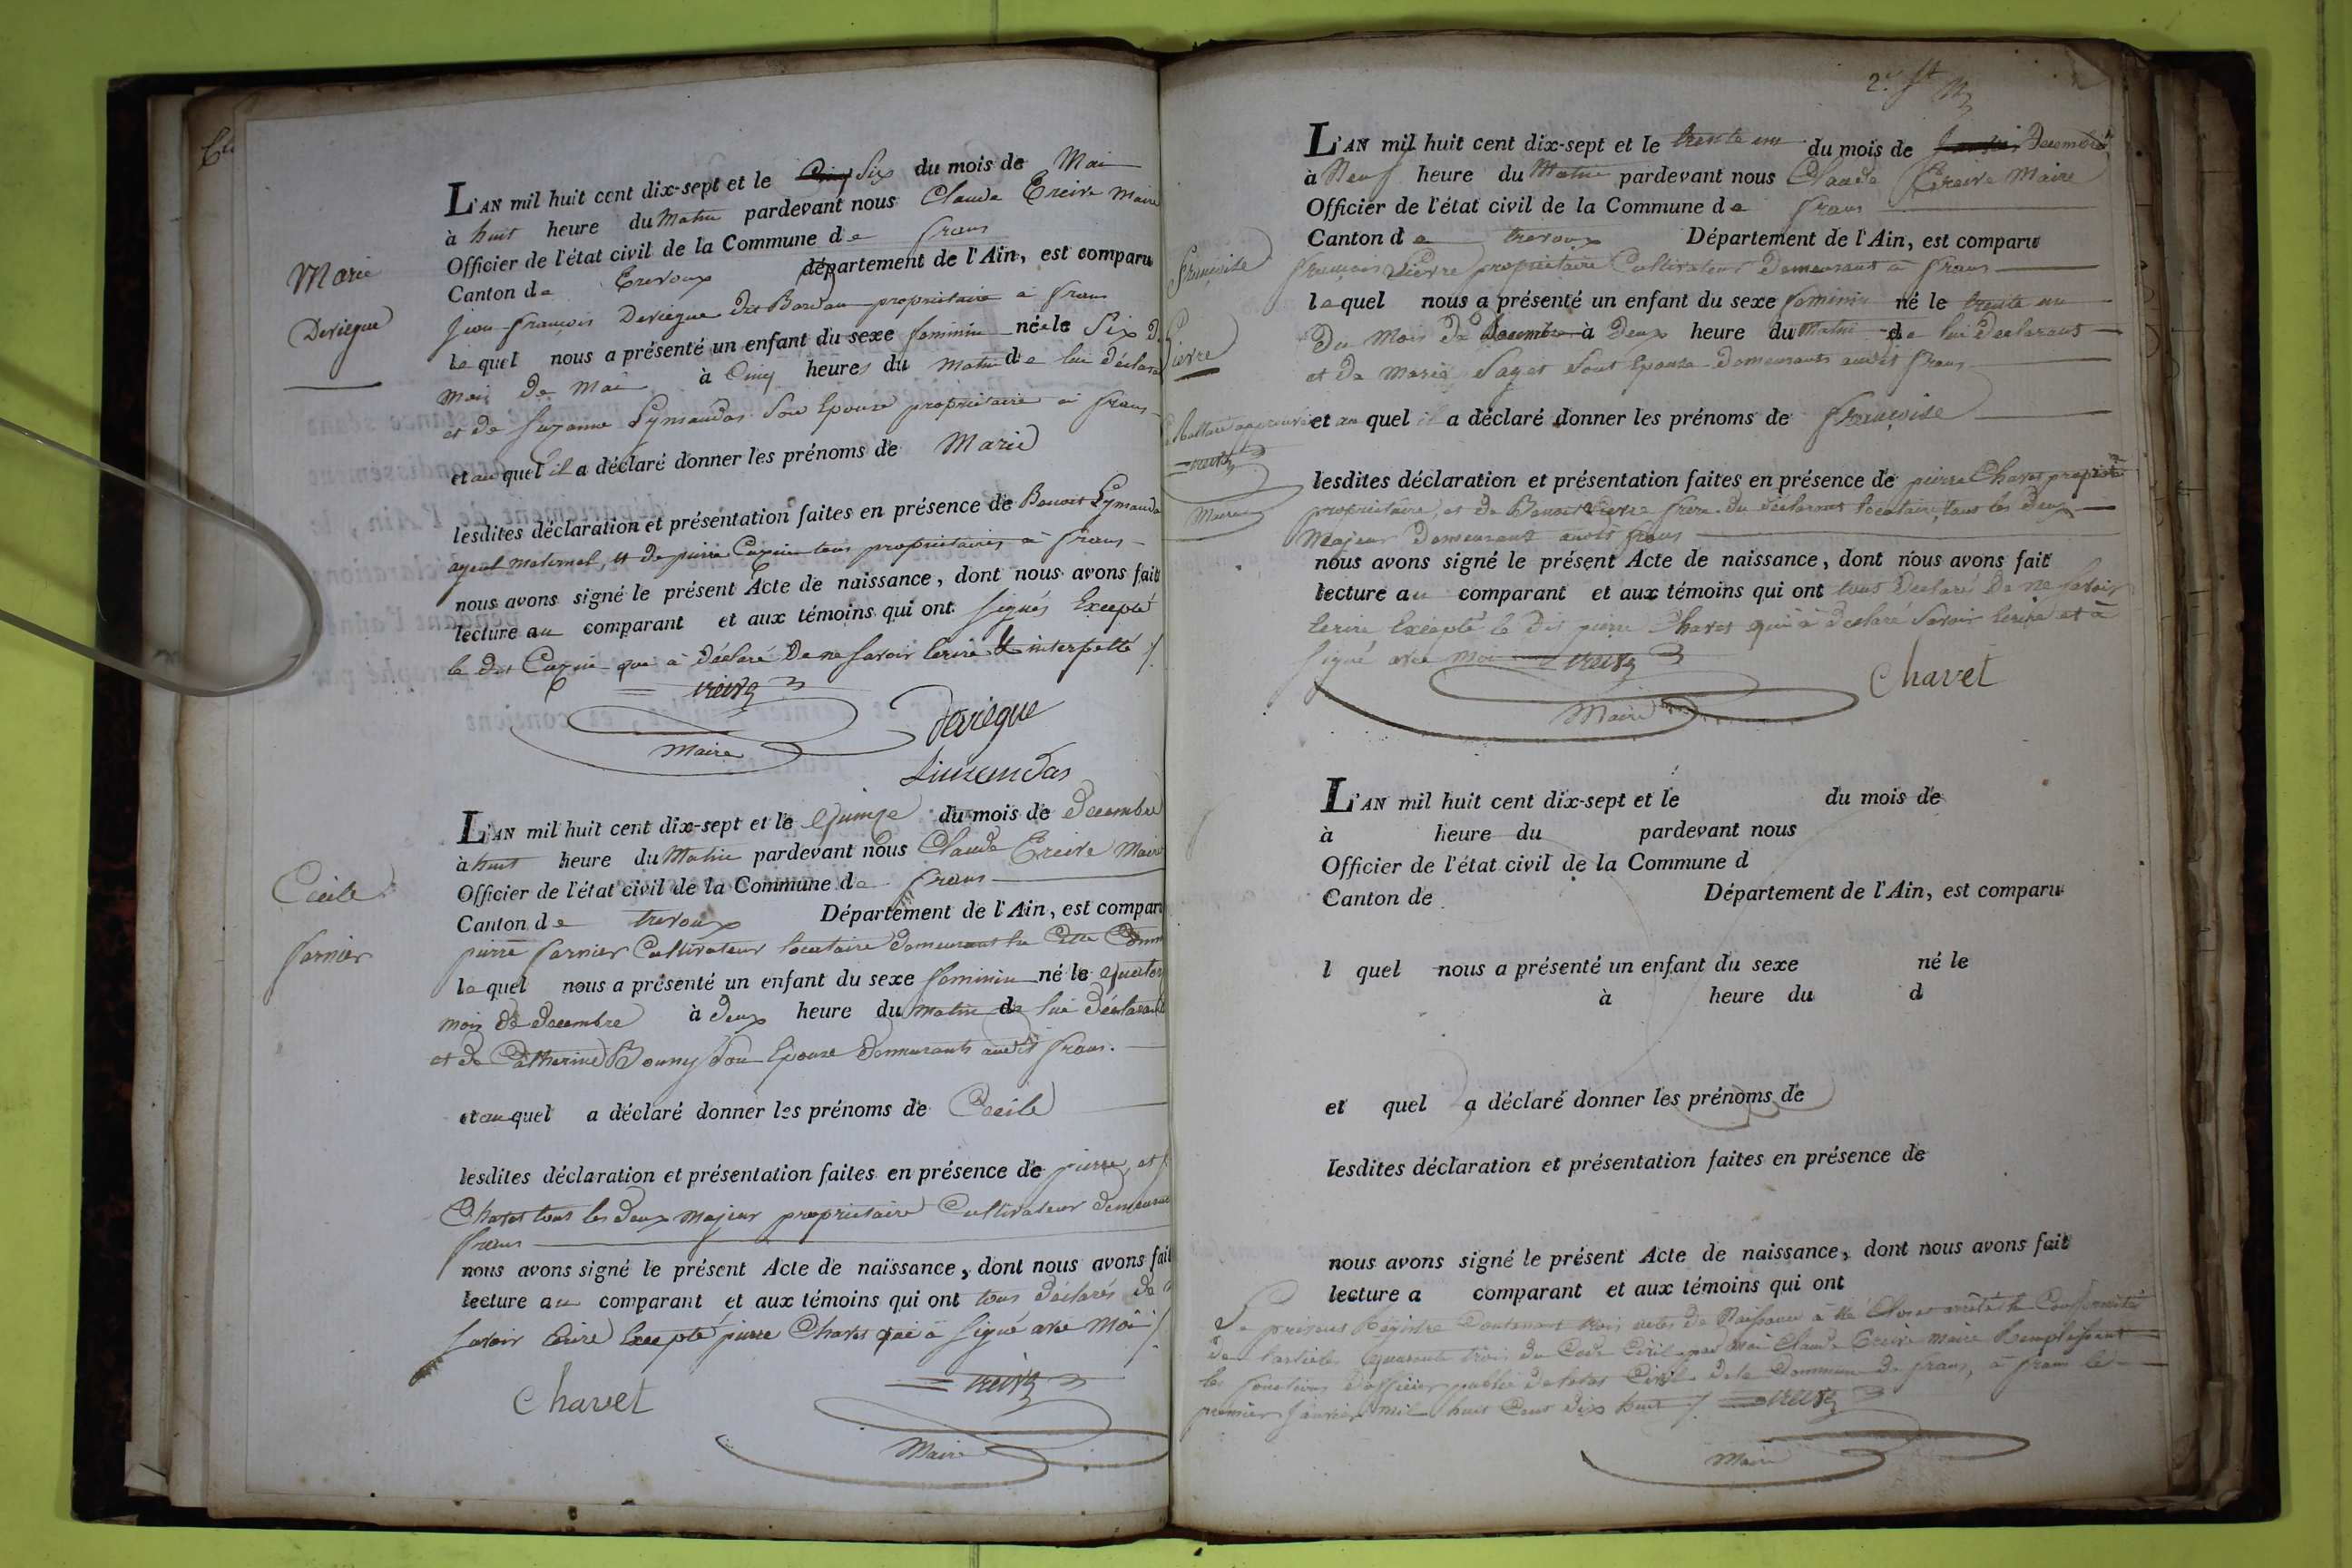 Marie
Deriegue
L'AN mil huit cent dix-sept et le Six du mois de Mai
à huit heure du Matin pardevant nous Claude Treive Maire
Officier de l'état civil de la Commune de frans
Canton de Trevoux département de l'Ain, est comparu
Jean-françois Deriegue dit Bordau propriétaire à frans
lequel nous a présenté un enfant du sexe feminin née le Six d
mois de Mai à Cinq heures du matin de lui déclara
et de Suzanne Lymandas Son Epouse propriétaire à frans
et au quel il a déclaré donner les prénoms de Marie
lesdites déclaration et présentation faites en présence de Benoit Lymanda
ayeul maternel, et de pierre tous propriétaires à frans
nous avons signé le présent Acte de naissance, dont nous avons fait
lecture au comparant et aux témoins qui ont Signés Excepté
le dit qui à déclaré De ne Savoir Ecrire & interpellé /.
Treive
Maire
Deriegue
Limandas
Cécile
farnier
L'AN mil huit cent dix-sept et le Quinze du mois de Decembre
à huit heure du Matin pardevant nous Claude Treive Maire
Officier de l'état civil de la Commune de frans
Canton de trevoux Département de l'Ain, est compar
pierre farnier Cultivateur locataire demeurant En Cette Comm
lequel nous a présenté un enfant du sexe feminin né le quator
mois de decembre à deux heure du matin de lui déclarant
et de Catherine Bouny Son Epouse demeurants audit frans.
et au quel a déclaré donner les prénoms de Cecile
lesdites déclaration et présentation faites en présence de pierre, et f
Chavet tous les deux Majeur propriétaire Cultivateur demeura
frans
nous avons signé le présent Acte de naissance, dont nous avons fait
lecture au comparant et aux témoins qui ont tous déclarés de n
Savoir Ecrire Excepté pierre Chavet qui à Signé avec Moi /.
Chavet
Treive
Maire
2.
L'AN mil huit cent dix-sept et le trente un du mois de Decembre
à Neuf heure du Matin pardevant nous Claude Treive Maire
Officier de l'état civil de la Commune de frans
Canton de trevoux Département de l'Ain, est comparu
françois Pierre propriétaire Cultivateur Demeurant à frans
lequel nous a présenté un enfant du sexe feminin né le trente un
Du Mois De decembre à Deux heure du Matin de lui Declarant
et de Marie Sayet Sont Epouse Demeurants audit frans
et au quel il a déclaré donner les prénoms de françoise
françoise
Pierre
approuvé
Treive
Maire
lesdites déclaration et présentation faites en présence de pierre Chavet propriét
propriétaire, et de Benoit Pierre frere du déclarant locataire, tous les Deux
Majeur Demeurant audit frans
nous avons signé le présent Acte de naissance, dont nous avons fait
lecture au comparant et aux témoins qui ont tous Declaré De ne Savoir
Ecrire Excepté le Dit pierre Chavet qui à declaré Savoir Ecrire et à
Signé avec Moi Treive
Maire
Chavet
L'AN mil huit cent dix-sept et le du mois de
à heure du pardevant nous
Officier de l'état civil de la Commune d
Canton de Département de l'Ain, est comparu
l quel nous a présenté un enfant du sexe né le
à heure du d
et quel a déclaré donner les prénoms de
lesdites déclaration et présentation faites en présence de
nous avons signé le présent Acte de naissance, dont nous avons fait
lecture a comparant et aux témoins qui ont
Le présent Régistre Contenant trois actes de Naissance à été Clos et arrêté En Conformité
De l'article quarante trois du Code Civil par moi Claude Treive Maire Remplissant
les fonctions D'officier public de l'état Civil De la Commune De frans, à frans le
premier Janvier mil huit Cent Dix huit / Treive
Maire